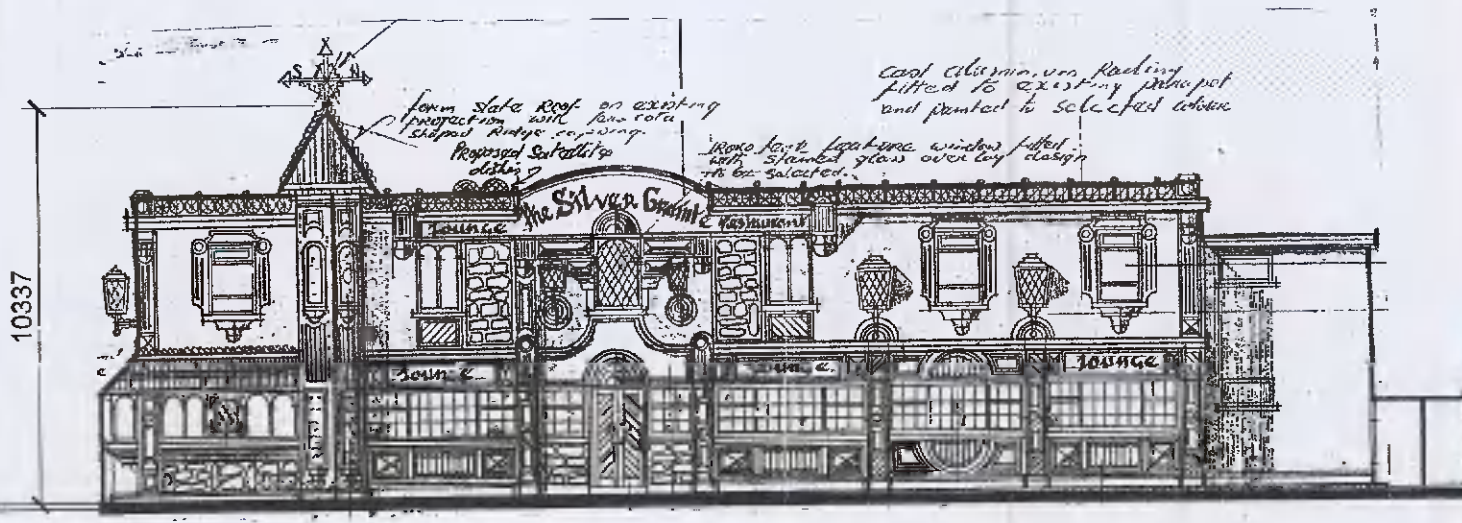 S N
form slate Roof on existing
projection with
shaped Ridge
Proposed Satellite
dishes
cast aluminium Railing
fitted to existing parapet
and painted to selected colour
feature window fitted
with stained glass over lay design
to be selected.
The Silver Granite
Lounge
Restaurant
10337
Lounge
Lounge
Lounge